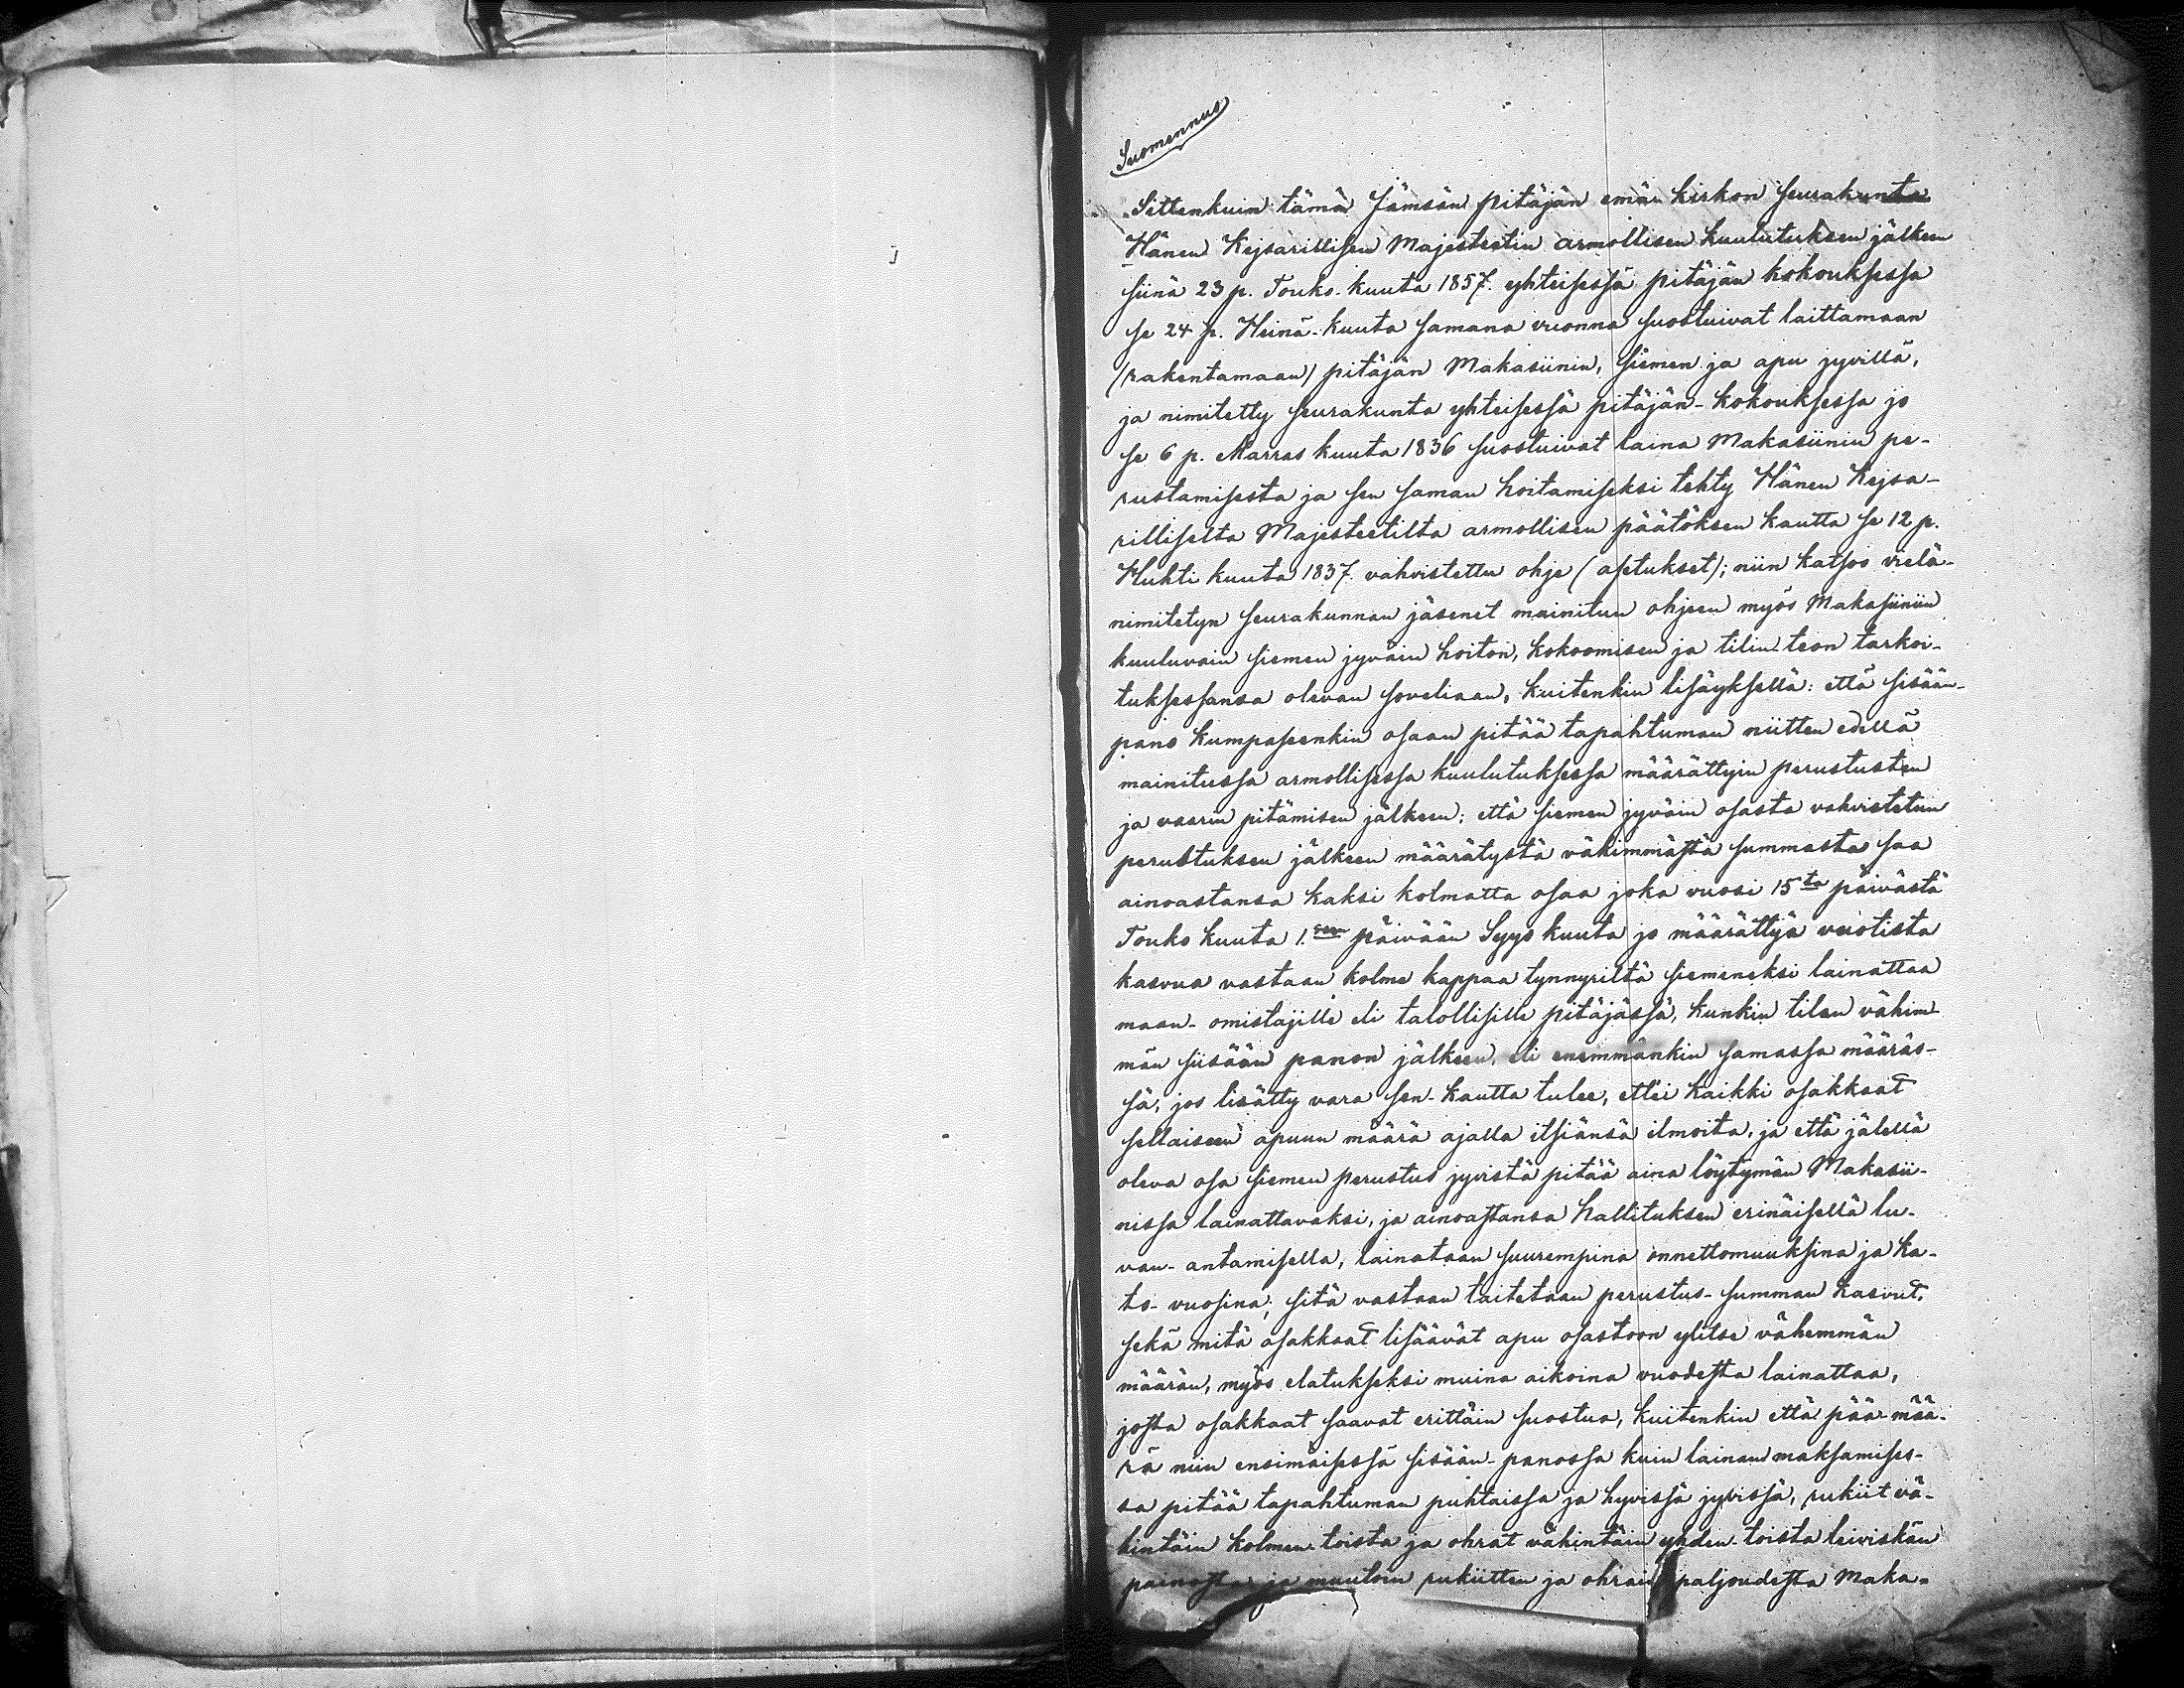 Suomennus
Sittenkuin tämä Jämsän pitäjän emän kirkon seurakunta
Hänen Kejsarillisen Majesteetin armollisen kuulutuksen jälkeen
siinä 23 p. Touko-kuuta 1857. yhteisessä pitäjän kokouksessa
se 24 p. Heinä-kuuta samana vuonna suostuivat laittamaan
(rakentamaan) pitäjän Makasiinin, siemen ja apu jyvillä,
ja nimitetty seurakunta yhteisessä pitäjän-kokouksessa jo
se 6 p. Marras kuuta 1836 suostuivat laina Makasiinin pe-
rustamisesta ja sen saman hoitamiseksi tehty Hänen Kejsa-
rilliselta Majesteetilta armollisen päätöksen kautta se 12 p.
Huhti kuuta 1837. vahvistettu ohje (asetukset); niin katsoo vielä-
nimitetyn seurakunnan jäsenet mainitun ohjeen myös Makasiiniin
kuuluvain siemen jyväin hoiton, kokoomisen ja tilin teon tarkoi-
tuksessansa olevan soveliaan, kuitenkin lisäyksellä: että sisään-
pano kumpaseenkin osaan pitää tapahtuman niitten edellä
mainitussa armollisessa kuulutuksessa määrättyin perustusten
ja vaarin pitämisen jälkeen; että siemen jyväin osasta vahvistetun
perustuksen jälkeen määrätystä vähimmästä summasta saa
ainoastansa kaksi kolmatta osaa joka vuosi 15ta päivästä
Touko kuuta 1.sen päivään Syys kuuta jo määrättyä vuotista
kasvua vastaan kolme kappaa tynnyriltä siemeneksi lainattaa
maan-omistajille eli talollisille pitäjässä, kunkin tilan vähim-
män siisään panon jälkeen, eli enemmänkin samassa määräs-
sä, jos lisätty vara sen-kautta tulee, ettei kaikki osakkaat
sellaiseen apuun määrä ajalla itsiänsä ilmoita, ja että jälellä
oleva osa siemen perustus jyvistä pitää aina löytymän Makasii-
nissa lainattavaksi, ja ainoastansa hallituksen erinäisellä lu-
van-antamisella, lainataan suurempina onnettomuuksina ja ka-
to-vuosina; sitä vastaan taitetaan perustus-summan kasvut,
sekä mitä osakkaat lisäävät apu osastoon ylitse vähemmän
määrän, myös elatukseksi muina aikoina vuodesta lainattaa,
josta osakkaat saavat erittäin suostua, kuitenkin että pää-mää-
rä niin ensimäisessä sisään-panossa kuin lainan maksamises-
sa pitää tapahtuman puhtaissa ja hyvissä jyvissä, rukiit vä-
hintäin kolmen-toista ja ohrat vähintäin yhden-toista leiviskän
painosta ja muutoin rukiitten ja ohrain paljoudesta Maka-